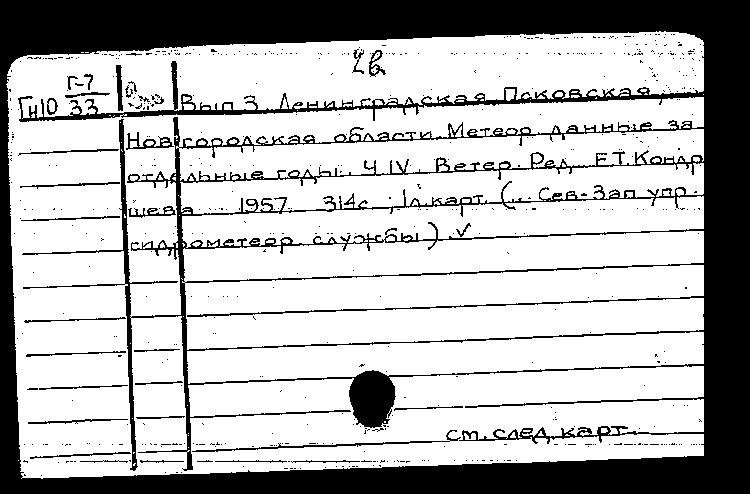 2в
Г-7
Гн10 33 Вып 3. Ленинградская, Псковская,
Новгородская области. Метеор данные за
отдельные годы. Ч. IV. Ветер. Ред. Е.Т. Кондр
шева 1957. 314с ; 1л.карт. (.. Сев-Зап упр.
гидрометеор службы) √
см. след. карт.